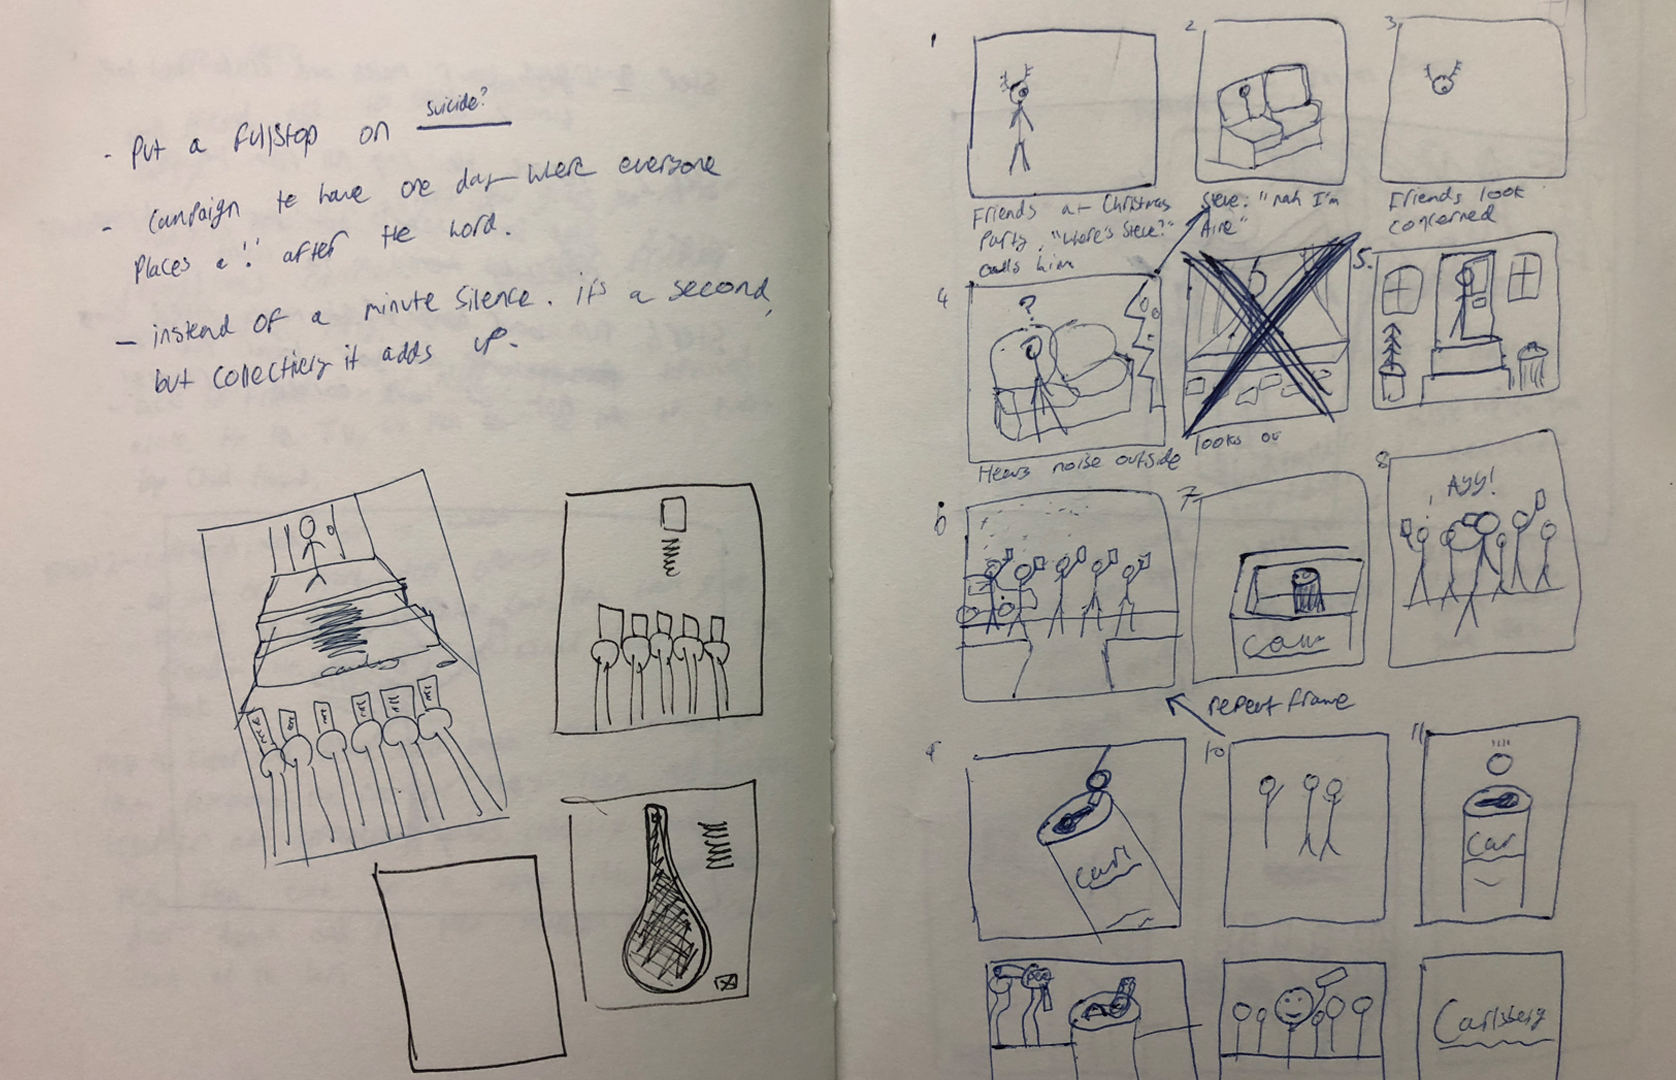 suicide?
- Put a fullstop on
- Campaign to have one day where everyone
Places a '.' after the word.
- instead of a minute silence. it's a second,
but collectively it adds up.
1
2
3
Friends at Christmas
Party. "Where's Steve?"
calls him
Steve: "nah I'm
Aire"
Friends look
concerned
4
?
Hears noise outside
looks ou
5.
6
7
Car
8
Ayy!
repeat frame
9
Carl
10
11
Car
Carlsberg